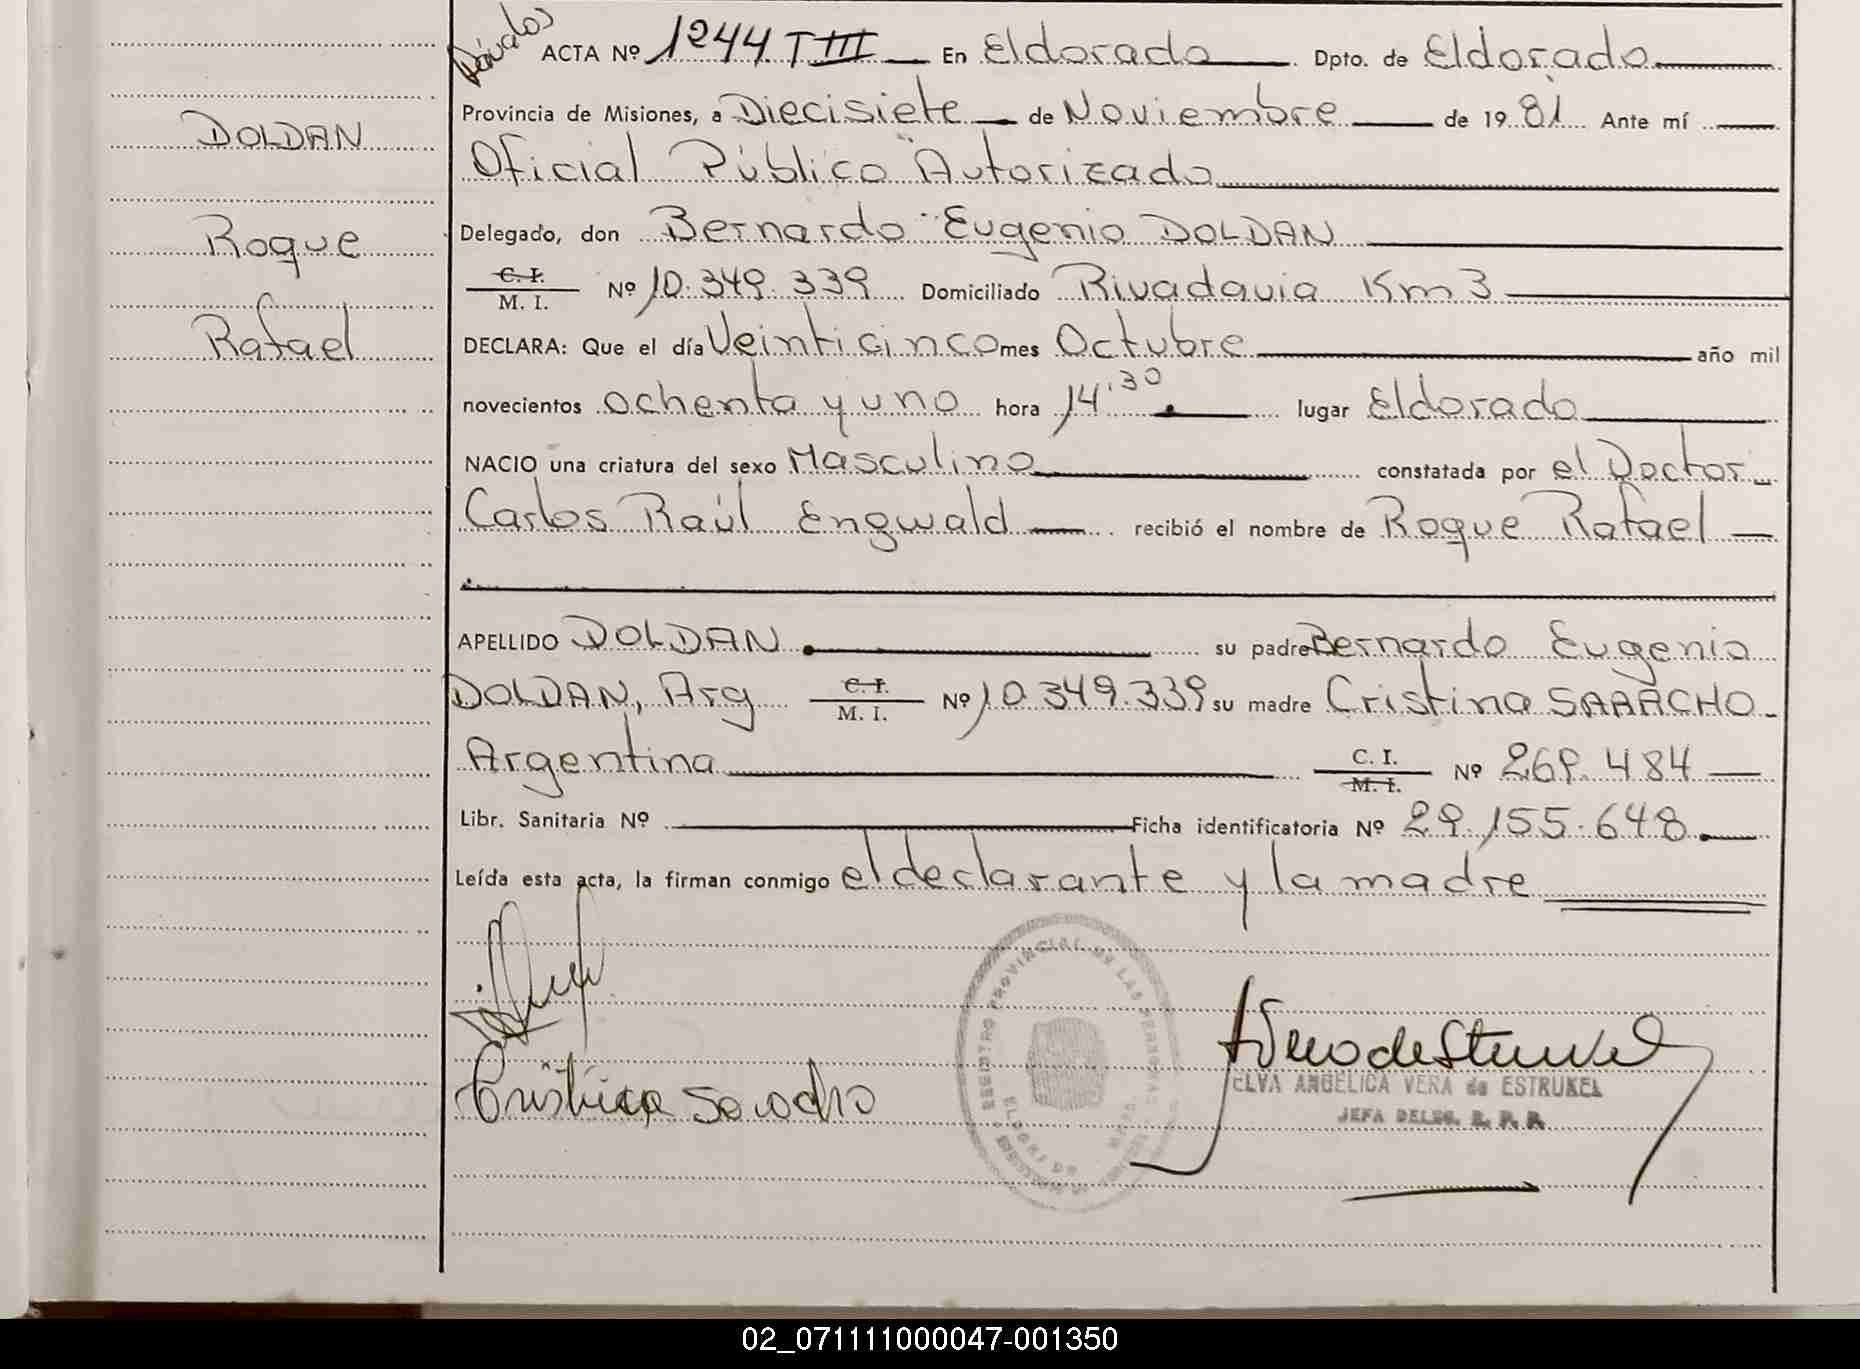 Dávalos
ACTA Nº 1244 T III En Eldorado Dpto. de Eldorado
Provincia de Misiones, a Diecisiete de Noviembre de 1981 Ante mí
Oficial Público Autorizado
Delegado, don Bernardo Eugenio DOLDAN
C. I. / M. I. Nº 10.349.339 Domiciliado Rivadavia Km 3
DECLARA: Que el día Veinticinco mes Octubre año mil
novecientos ochenta y uno hora 14.30 lugar Eldorado
NACIO una criatura del sexo Masculino constatada por el Doctor
Carlos Raúl Engwald recibió el nombre de Roque Rafael
APELLIDO DOLDAN su padre Bernardo Eugenio
DOLDAN, Arg C. I. / M. I. Nº 10.349.339 su madre Cristina SAAACHO
Argentina C. I. / M. I. Nº 269.484
Libr. Sanitaria Nº Ficha identificatoria Nº 29.155.648
Leída esta acta, la firman conmigo el declarante y la madre
DOLDAN
Roque
Rafael
REGISTRO PROVINCIAL DE LAS PERSONAS
ELDORADO
MISIONES
Cristina
ELVA ANGELICA VERA de ESTRUKEL
JEFA DELEG. R. P. P.
02_071111000047-001350